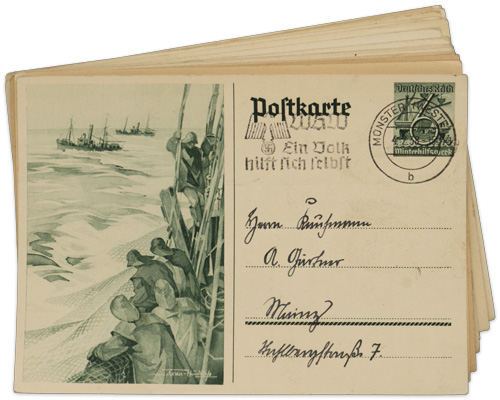 Postkarte
Deutsches Reich
Winterhilfswerk
MÜNSTER (WESTF)
b
WHW
Ein Volk
hilft sich selbst
Herrn Kaufmann
A. Gärtner
Mainz
straße 7.